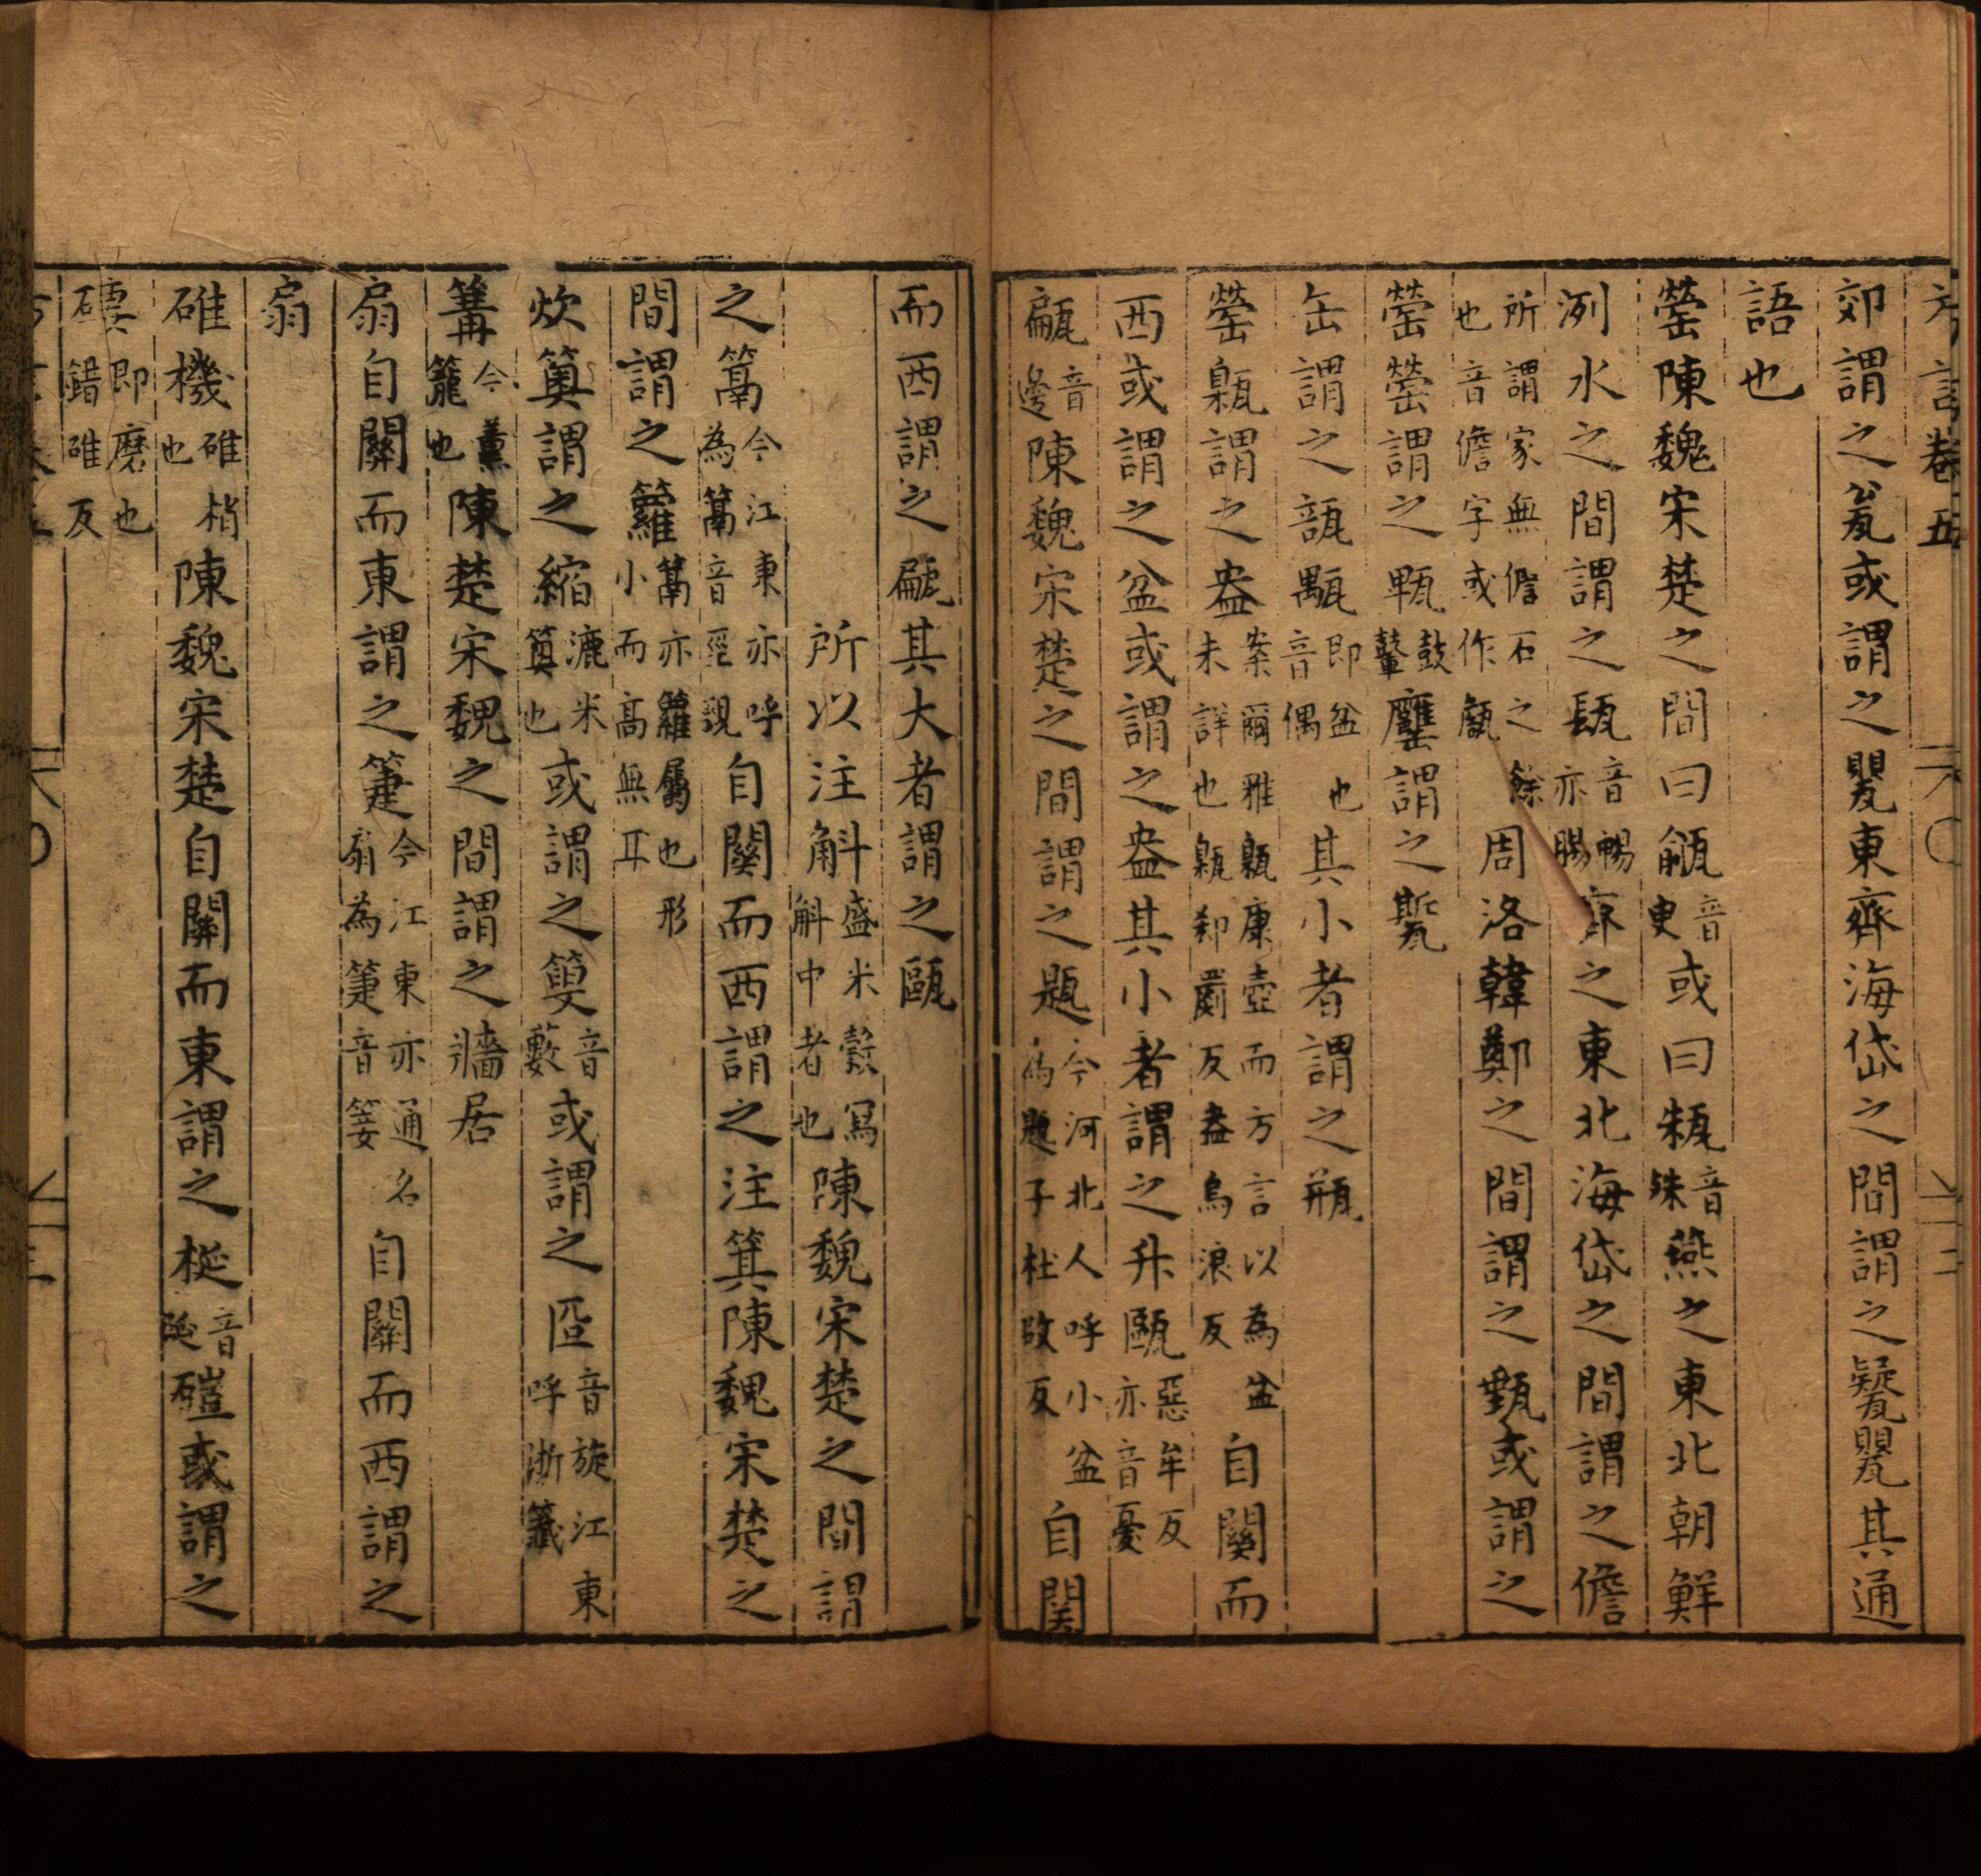 方言卷五
郊謂之瓮或謂之甖東齊海岱之間謂之㽈甖其通
語也
罃陳魏宋楚之間曰㼶音臾或曰㼡音殊燕之東北朝鮮
洌水之間謂之瓺音暢亦腸齊之東北海岱之間謂之儋
所謂家無儋石之餘也音儋字或作甔周洛韓鄭之間謂之甀或謂之
罃罃謂之甀鼓鼙謂之㽄
缶謂之瓿㼴即盆也音偶其小者謂之瓶
罃甈謂之盎案爾雅甈康壺而方言以為盆未詳也甈郄罽反盎烏浪反自關而
西或謂之盆或謂之盎其小者謂之升甌惡牟反亦音憂
甂音邊陳魏宋楚之間謂之㼵今河北人呼小盆為㼵子杜啟反自関
而西謂之甂其大者謂之甌
所以注斛盛米穀寫斛中者也陳魏宋楚之間謂
之篙今江東亦呼為篙音巠覡自關而西謂之注箕陳魏宋楚之
間謂之籮篙亦籮屬也形小而高無耳
炊䉛謂之縮漉米䉛也或謂之䉤音藪或謂之匴音旋江東呼淅籤
篝今薰籠也陳楚宋魏之間謂之牆居
扇自關而東謂之箑今江東亦通名扇為箑音箑自關而西謂之
扇
碓機碓梢也陳魏宋楚自關而東謂之梴音延磑或謂之
䃀即磨也錯碓反